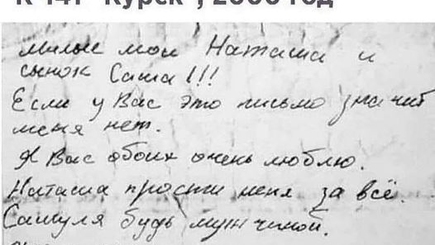 К-141 "Курск", 2000 год
милые мои Наташа и
сынок Саша!!!
Если у Вас это письмо значит
меня нет.
Я Вас обоих очень люблю.
Наташа прости меня за всё.
Сашуля будь мужчиной.